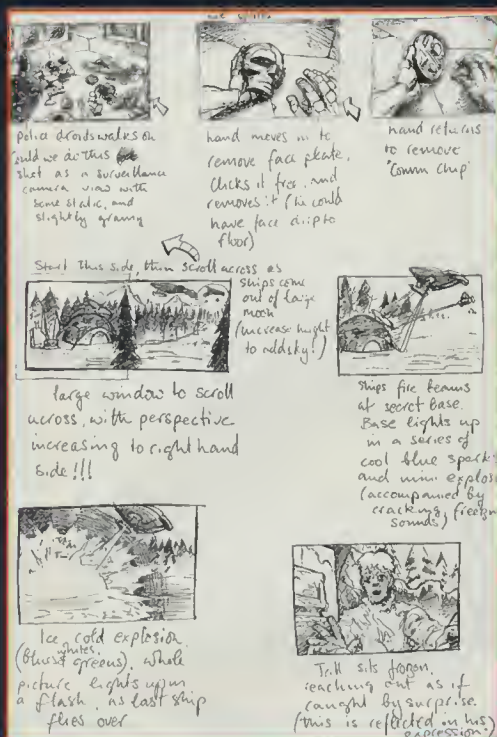 Police droids walks on
Could we do this
shot as a surveillance
camera view with
some static, and
slightly grainy
hand moves in to
remove face plate.
Clicks it free, and
removes it (we could
have face drip to
floor)
hand returns
to remove
"Comm Chip"
Start this side, then scroll across as
ships come
out of large
moon
(increase height
to add sky!)
large window to scroll
across, with perspective
increasing to right hand
side!!!
Ships fire beams
at secret base.
Base lights up
in a series of
cool blue sparks
and mini explos
(accompanied by
cracking, freezing
sounds)
Ice cold explosion.
whites
(blues greens), whole
picture lights up in
a flash, as last ship
flies over
sits frozen,
reaching out as if
caught by surprise.
(this is reflected in his
expression!)